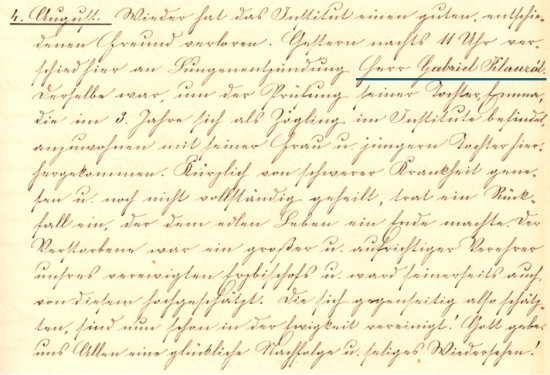 4. August. Wieder hat das Institut einen guten, entschie-
denen Freund verloren. Gestern nachts 11 Uhr ver-
schied hier an Lungenentzündung Herr Gabriel Pilauzál.
Derselbe war, um der Prüfung seiner Tochter Emma,
die im 3. Jahre sich als Zögling im Institute befindet,
anzuwohnen mit seiner Frau u. jüngern Tochter hier-
hergekommen. Kürzlich von schwerer Krankheit gene-
sen u. noch nicht vollständig geheilt, trat ein Rück-
fall ein, der dem edlen Leben ein Ende machte. Der
Verstorbene war ein großer u. aufrichtiger Verehrer
unsres verewigten Erzbischofs u. ward seinerseits auch
von diesem hochgeschätzt. Die sich gegenseitig also schätz-
ten, sind nun schon in der Ewigkeit vereinigt! Gott gebe
uns Allen eine glückliche Nachfolge u. seliges Wiedersehen!